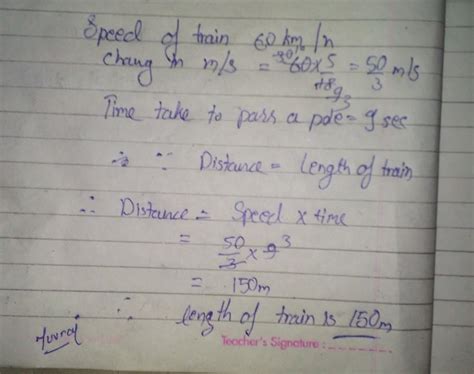 Speed of train 60 km/h
chang in m/s = 60 x 5/18 = 50/3 m/s
Time take to pass a pole = 9 sec
∴ ∵ Distance = length of train
∴ Distance = Speed x time
= 50/3 x 9 3
= 150m
∴ length of train is 150m
Teacher's Signature :